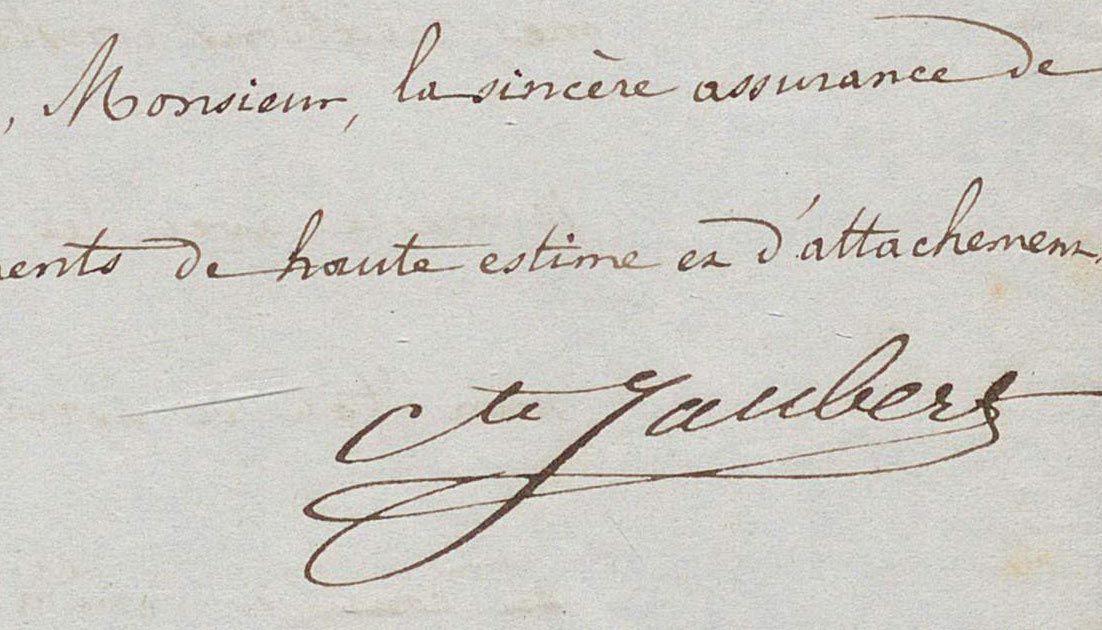 , Monsieur, la sincère assurance de
ents de haute estime et d'attachement.
Cte Jaubert